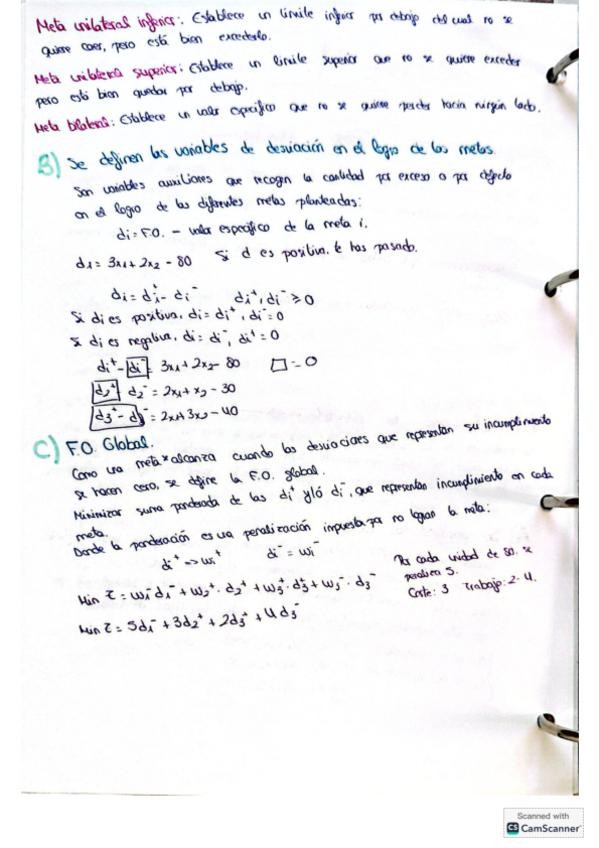 Meta unilateral inferior: Establece un límite inferior por debajo del cual no se
quiere caer, pero está bien excederlo.
Meta unilateral superior: Establece un límite superior que no se quiere exceder
pero está bien quedar por debajo.
Meta bilateral: Establece un valor específico que no se quiere perder hacia ningún lado.
B) Se definen las variables de desviación en el logro de las metas.
Son variables auxiliares que recogen la cantidad por exceso o por defecto
en el logro de las diferentes metas planteadas:
di = F.O. - valor específico de la meta i.
d1 = 3x1 + 2x2 - 80 Si d es positiva, te has pasado.
di = di⁺ - di⁻ di⁺, di⁻ ≥ 0
Si di es positiva, di = di⁺, di⁻ = 0
Si di es negativa, di = di⁻, di⁺ = 0
di⁺ - di⁻ = 3x1 + 2x2 - 80 □ = 0
d2⁺ d2⁻ = 2x1 + x2 - 30
d3⁺ - d3⁻ = 2x1 + 3x2 - 40
C) F.O. Global.
Como una meta se alcanza cuando las desviaciones que representan su incumplimiento
se hacen cero, se define la F.O. global.
Minimizar suma ponderada de las di⁺ y/o di⁻, que representan incumplimiento en cada
meta.
Donde la ponderación es una penalización impuesta por no lograr la meta:
di⁺ => wi⁺ di⁻ = wi⁻
Min z = w1⁻ d1⁻ + w2⁺ · d2⁺ + w3⁺ · d3⁺ + w3⁻ · d3⁻
Min z = 5d1⁻ + 3d2⁺ + 2d3⁺ + 4d3⁻
Por cada unidad de 80, se
penaliza 5.
Coste: 3 Trabajo: 2-4.
Scanned with
CS CamScanner